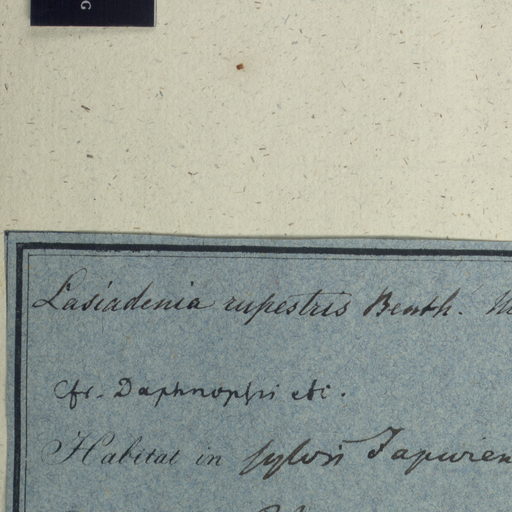 G
Lasiadenia rupestris Benth.
cfr. Daphnopsi etc.
Habitat in sylvis